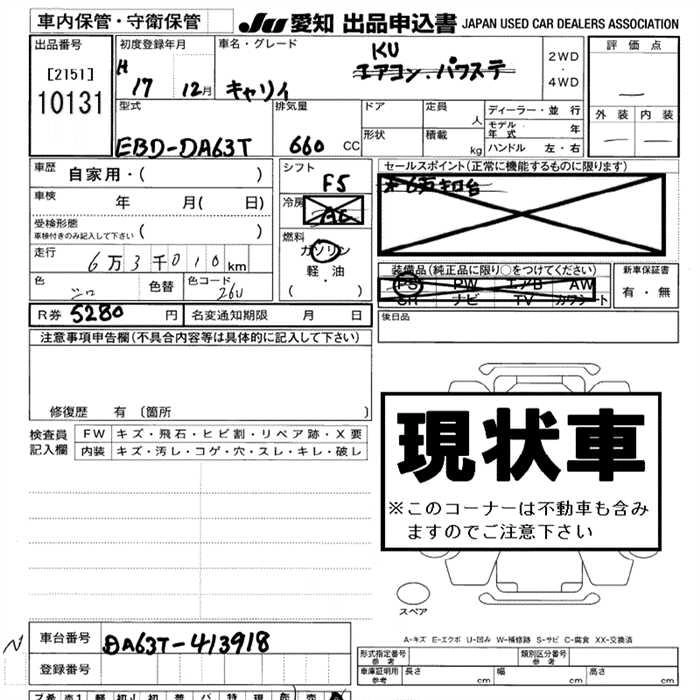 車内保管・守衛保管
JU 愛知 出品申込書 JAPAN USED CAR DEALERS ASSOCIATION
出品番号 初度登録年月 車名・グレード 評価点
[2151] H 17 12月 キャリイ KU エアコン.パワステ 2WD・4WD
10131 外装 内装
型式 排気量 ドア 定員 人 ディーラー・並行
EBD-DA63T 660 CC 形状 積載 kg モデル年式 年
ハンドル 左・右
車歴 自家用・( ) シフト F5 セールスポイント(正常に機能するものに限ります)
車検 年 月( 日) 冷房 AC
受検形態 車検付きのみ記入して下さい ( ) 燃料 ガソリン 軽・油 ( )
走行 6万3千010km 装備品(純正品に限り○をつけてください) 新車保証書
色 シロ 色替 色コード 26U PS PW エアB AW 有・無
SR ナビ TV カワシート
R券 5280円 名変通知期限 月 日 後日品
注意事項申告欄(不具合内容等は具体的に記入して下さい)
修復歴 有〔箇所 〕
検査員記入欄 FW キズ・飛石・ヒビ割・リペア跡・X要
内装 キズ・汚レ・コゲ・穴・スレ・キレ・破レ
現状車
※このコーナーは不動車も含みますのでご注意下さい
スペア
A-キズ E-エクボ U-凹み W-補修跡 S-サビ C-腐食 XX-交換済
車台番号 DA63T-413918 形式指定番号 参考 類別区分番号 参考
登録番号 車庫証明用 参考 長さ cm 幅 cm 高さ cm